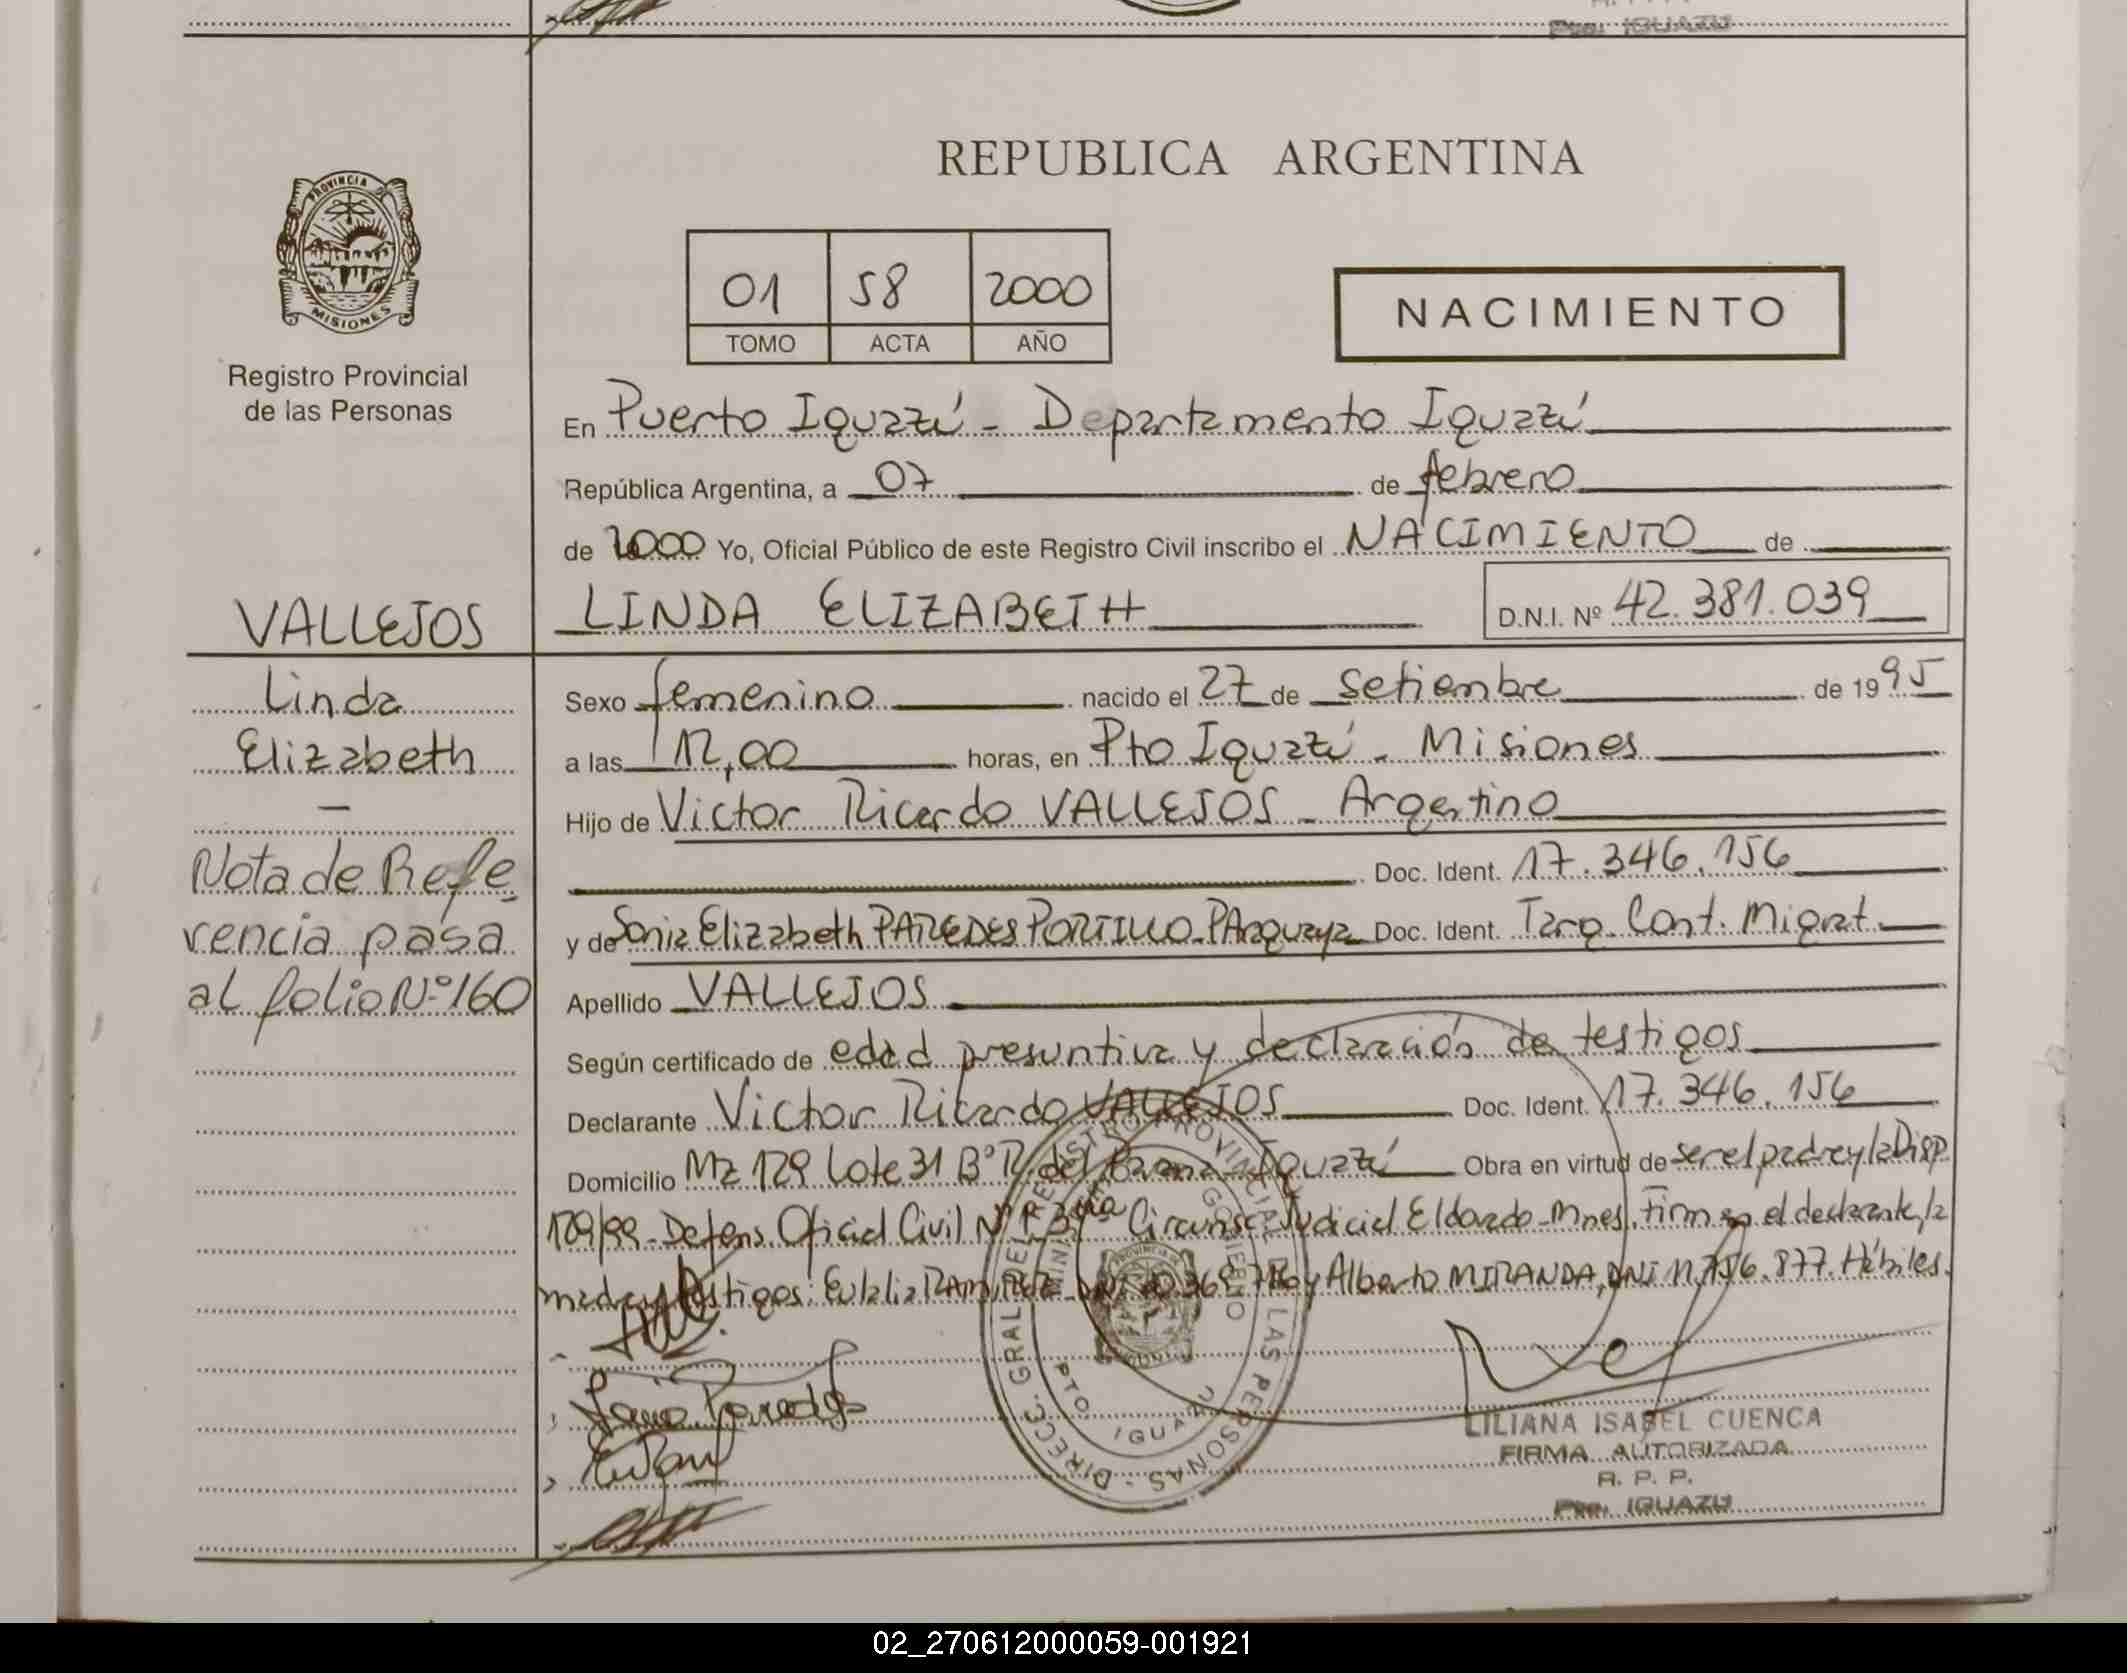 Pto. IGUAZU
REPUBLICA ARGENTINA
PROVINCIA DE
MISIONES
Registro Provincial
de las Personas
01 58 2000
TOMO ACTA AÑO
NACIMIENTO
En Puerto Iguazú - Departamento Iguazú
República Argentina, a 07 de febrero
de 2000 Yo, Oficial Público de este Registro Civil inscribo el NACIMIENTO de
VALLEJOS
LINDA ELIZABETH D.N.I. Nº 42.381.039
Linda
Elizabeth
Nota de Refe
rencia pasa
al folio Nº 160
Sexo femenino nacido el 27 de setiembre de 1995
a las 12,00 horas, en Pto Iguazú - Misiones
Hijo de Victor Ricardo VALLEJOS - Argentino
Doc. Ident. 17.346.156
y de Sonia Elizabeth PAREDES PORTILLO - PAraguaya Doc. Ident. Tarq. Cont. Migrat.
Apellido VALLEJOS
Según certificado de edad presuntiva y declaración de testigos
Declarante Victor Ricardo VALLEJOS Doc. Ident. 17.346.156
Domicilio Mz 129 Lote 31 Bº R. del Parana - Iguazú Obra en virtud de ser el padre y la Disp
129/99 - Defens. Oficial Civil Nº 1 Circunsc. Judicial Eldorado - Mnes. Firman el declarante, la
madre y testigos: Eulalia RAMIREZ - DNI y Alberto MIRANDA, DNI 11.756.877. Hábiles.
Sonia Paredes
DIRECC. GRAL DEL REGISTRO PROVINCIAL DE LAS PERSONAS
GOBIERNO
PTO. IGUAZU
LILIANA ISABEL CUENCA
FIRMA AUTORIZADA
R. P. P.
Pto. IGUAZU
02_270612000059-001921